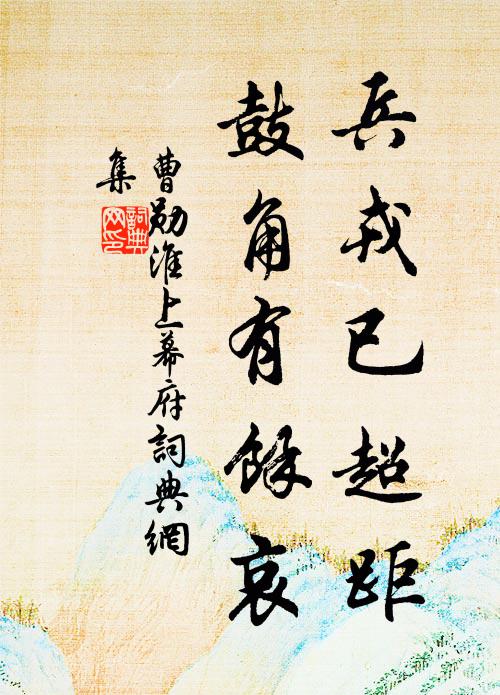 兵戎已超距
鼓角有餘哀
曹勛淮上幕府詞典網
集
詞典網印